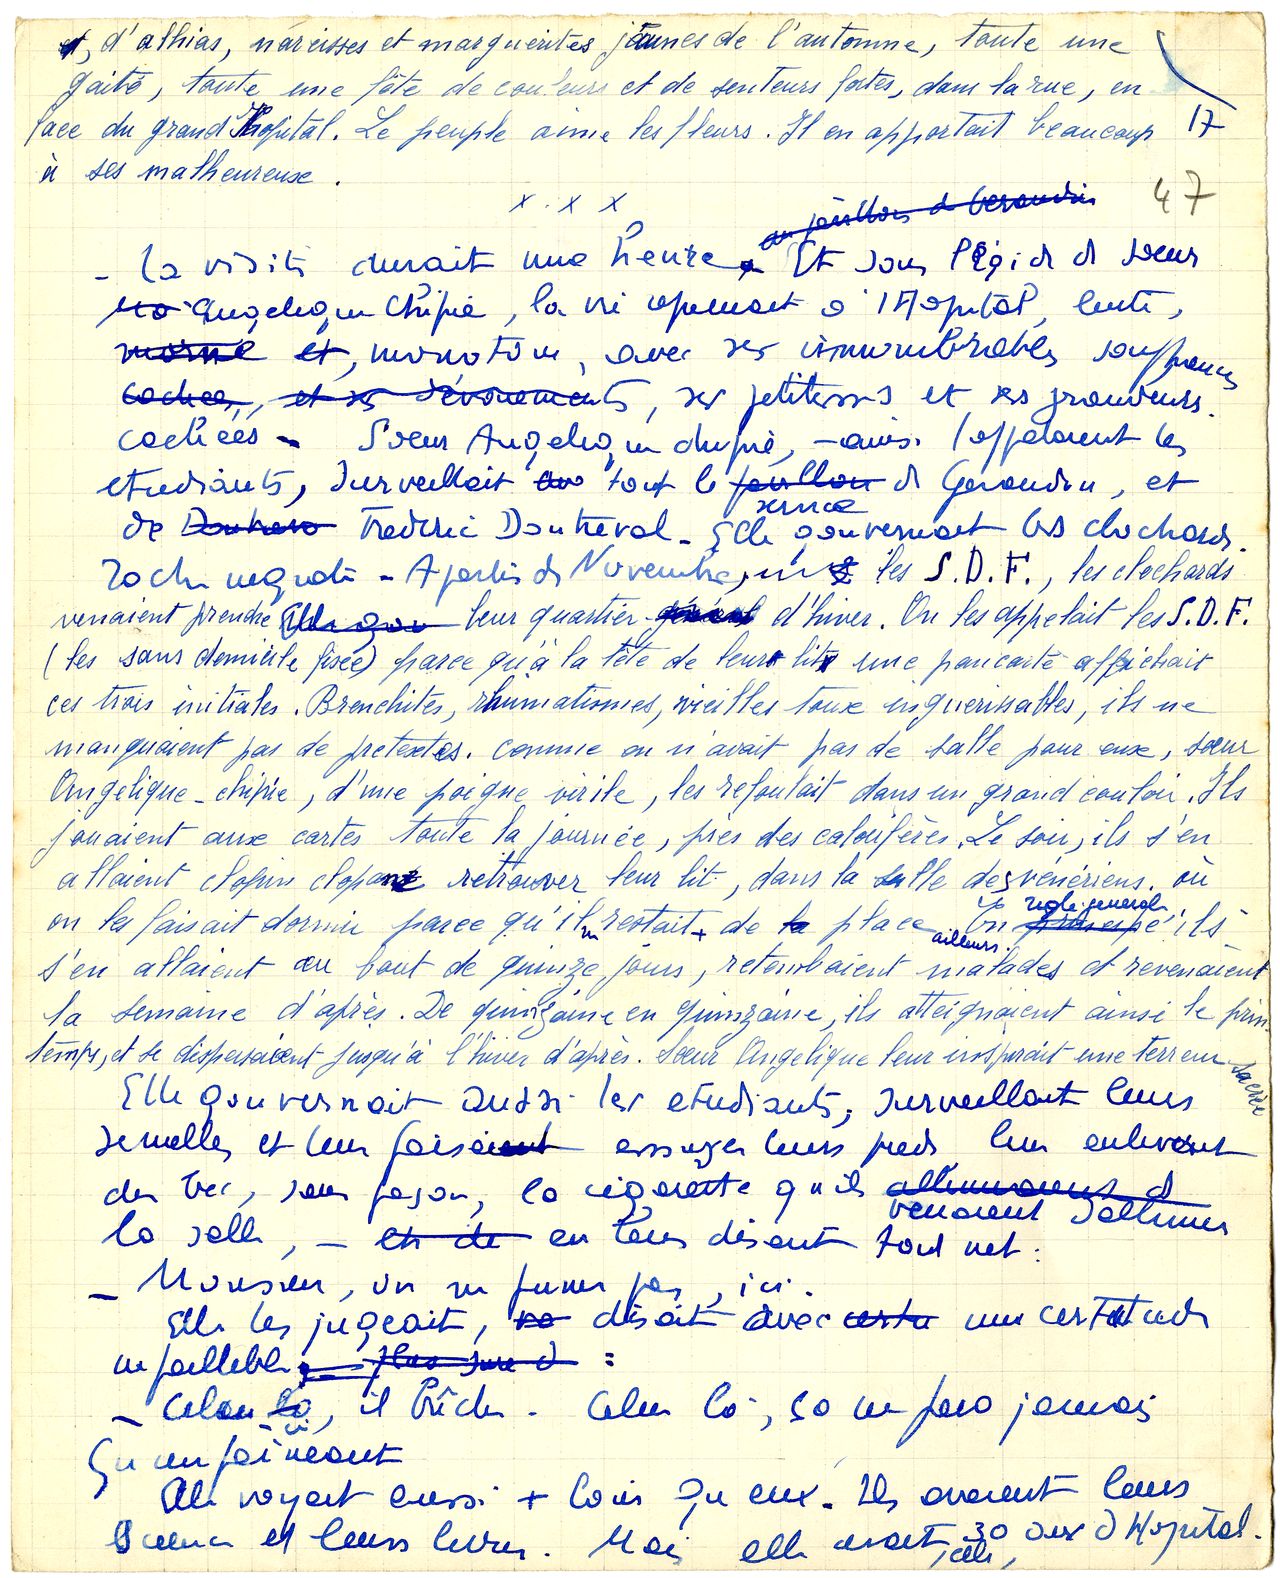 et, d'alhias, narcisses et marguerites jaunes de l'automne, toute une
gaité, toute une fête de couleurs et de senteurs fortes, dans la rue, en
face du grand Hopital. Le peuple aime les fleurs. Il en apportait beaucoup
17
à ses malheureuse.
x . x x
47
au pavillon de Geraudin
- La visite durait une heure. Et sous l'égide de soeur
Angelique Chipie, la vie reprenait à l'Hopital, lente,
morne et, monotone, avec ses innombrables souffrances
cachées, et ses dévouements, ses petitesses et ses grandeurs.
cachées - Soeur Angelique chipie, - ainsi l'appelaient les
etudiants, surveillait tout le pavillon de Geraudin, et
service
de Doutreval Frédéric Doutreval - Elle gouvernait les clochards.
A partir de Novembre, les S.D.F., les clochards
venaient prendre Elle gou leur quartier général d'hiver. On les appelait les S.D.F.
(les sans domicile fixe) parce qu'à la tête de leur lit une pancarte affichait
ces trois initiales. Bronchites, rhumatismes, vieilles toux inguerissables, ils ne
manquaient pas de pretextes. comme on n'avait pas de salle pour eux, soeur
Angelique-chipie, d'une poigne virile, les refoulait dans un grand couloir. Ils
jouaient aux cartes toute la journée, près des calorifères. Le soir, ils s'en
allaient clopin clopant retrouver leur lit, dans la salle des vénériens. où
on les faisait dormir parce qu'il restait + de la place
règle générale
En principe ils
ailleurs
s'en allaient au bout de quinze jours, retombaient malades et revenaient
la semaine d'après. De quinzaine en quinzaine, ils atteignaient ainsi le prin-
temps, et se dispersaient jusqu'à l'hiver d'après. Soeur Angelique leur inspirait une terreur sacrée
Elle gouvernait aussi les etudiants, surveillait leurs
semelles et leur faisait essuyer leurs pieds leur enlevait
du bec, sans façon, la cigarette qu'ils allumaient d
venaient d'allumer
la salle, - et de en leur disant tout net:
- Monsieur, on ne fume pas, ici.
Elle les jugeait, disait avec une certitude
infaillible :
- Celui ci, il bûche. Celui là, ça ne fera jamais
Qu'un fainéant
Elle voyait aussi + loin qu'eux. Ils avaient leurs
Science et leurs livres. Mais elle avait, elle, 30 ans d'Hopital.